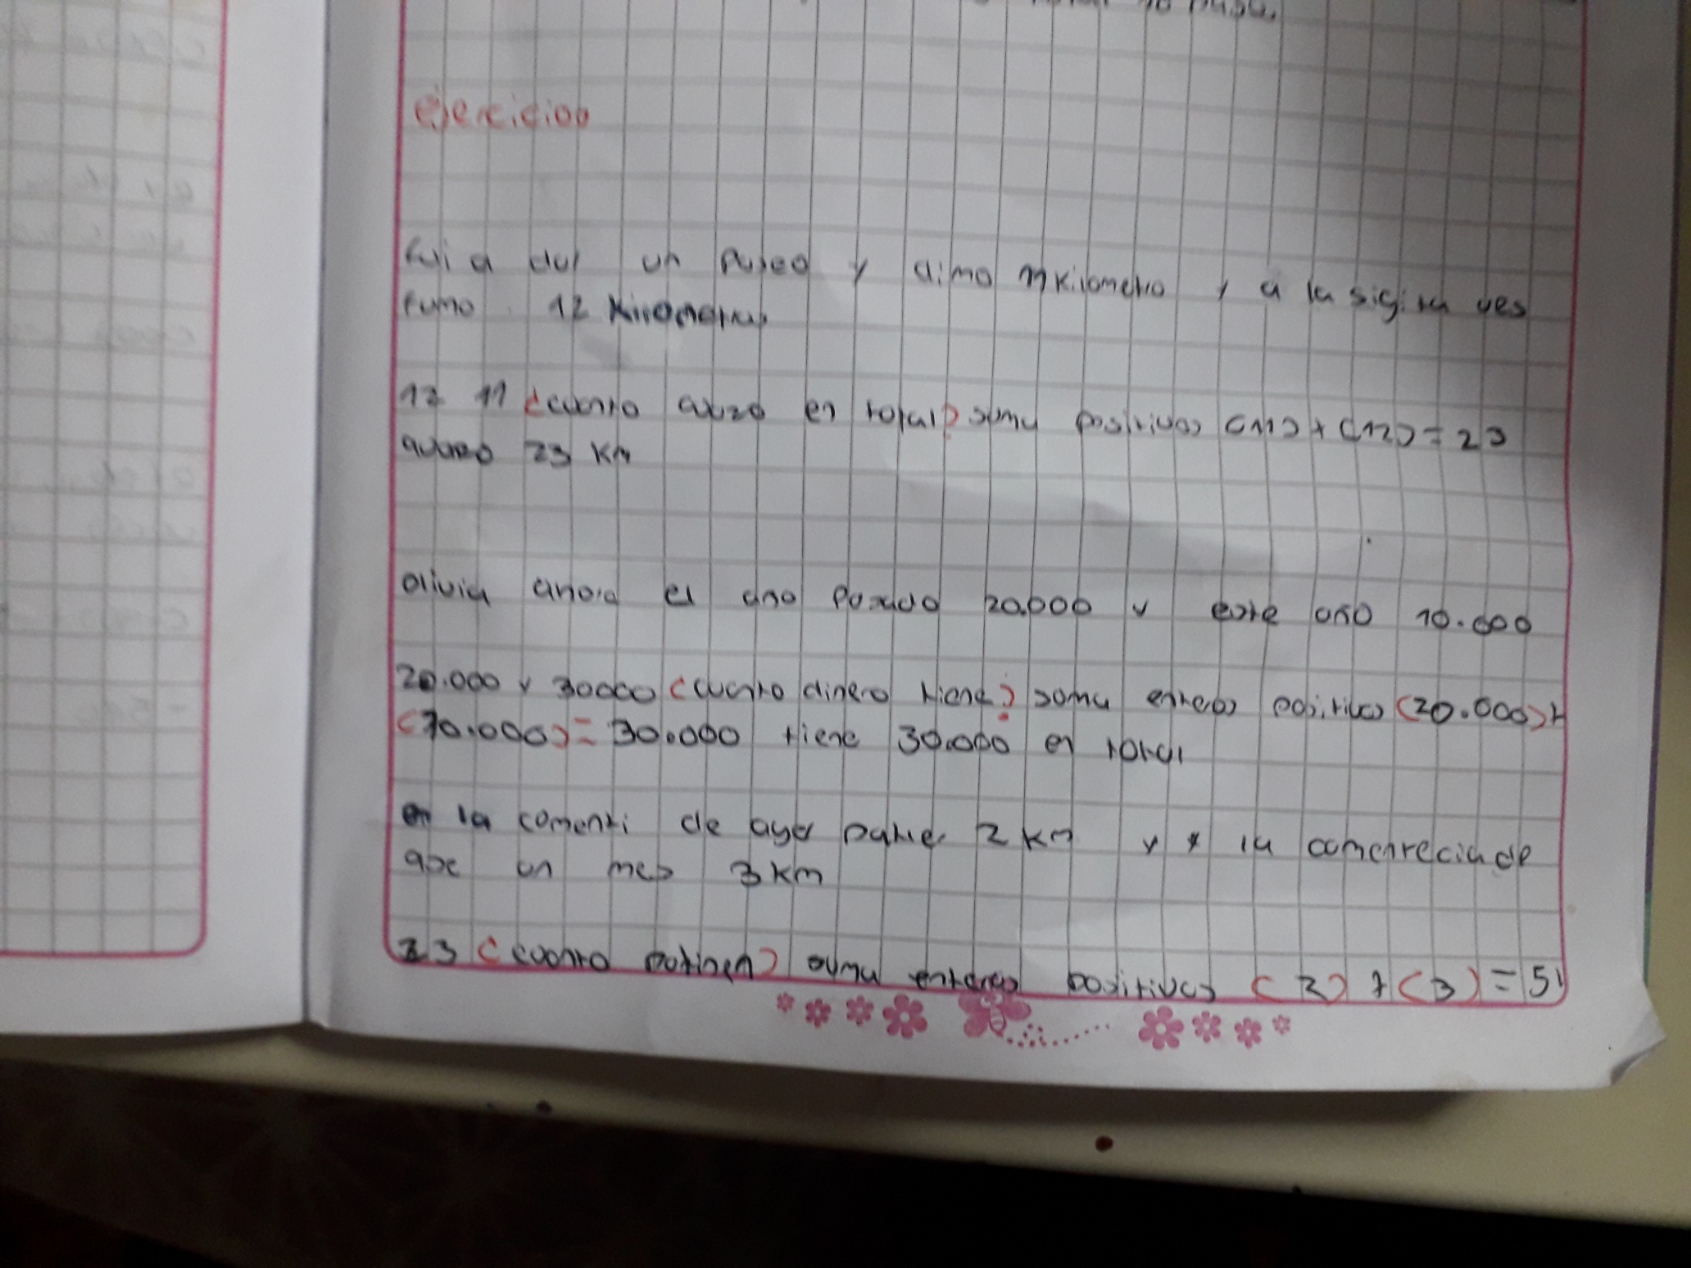 ejercicios
fui a dar un paseo y dimo 11 kilometro y a la sigira ves
fumo 12 Kilometrus
12 11 ¿cuanto avazo en total? suma positivos (11) + (12) = 23
avazo 23 Km
olivia ahora el año pasado 20.000 y este año 10.000
20.000 y 30000 ¿cuanto dinero tiene? soma enteros positivos (20.000) +
(10.000) = 30.000 tiene 30.000 en total
en la comenti de ayer patine 2 km y la comenrecia de
ace un mes 3 km
2 3 ¿cuanto patinen? suma enteros positivos (2) + (3) = 5